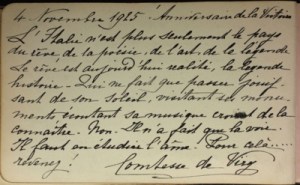 4 Novembre 1925 Anniversaire de la Victoire
L'Italie n'est plus seulement le pays
du rêve, de la poésie, de l'art, de la légende
Le rêve est aujourd'hui réalité, la légende
histoire - Qui ne fait que passer, jouis-
sant de son soleil, visitant ses monu-
ments écoutant sa musique croit de la
connaître. Non. Il n'a fait que la voir.
Il faut en étudier l'âme. Pour cela.....
revenez!
Comtesse de Viry